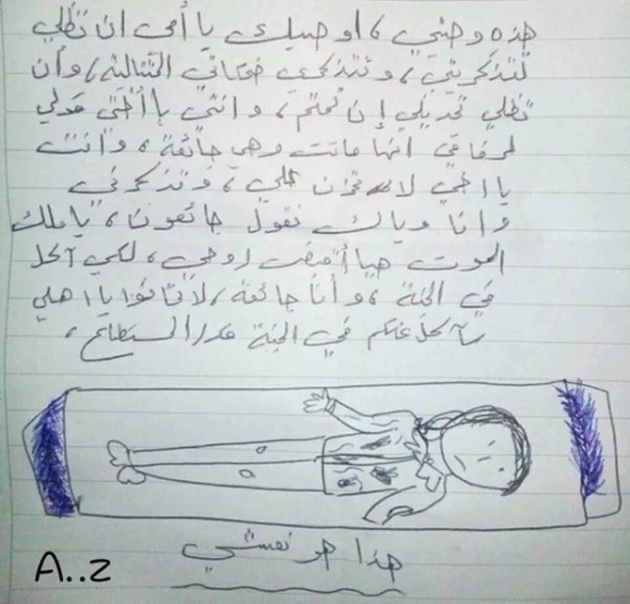 هذه وصيتي، أوصيك يا أمي ان تظلي
تتذكريني، وتتذكري ضحكاتي القتالية، وأن
تظلي تحديلي إن نمتم، وانتي يا أختي قولي
لرفاقي انها ماتت وهي جائعة، وانت
يا اخي لا تحزن علي، وتذكرني
وانا وياك نقول جائعون، يا ملك
الموت هيا أقبض روحي، لكي آكل
في الجنة، وأنا جائعة، لا تخافوا يا اهلي
سآكل عنكم في الجنة قدر المستطاع،
هذا هو نعشي
A..z